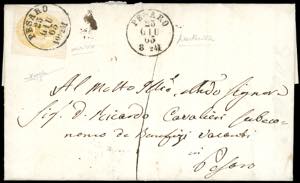 PESARO
23
GIU
65
PESARO
23
GIU
65
8 2M
Al Molto Illre.
Sig. D. Ricardo Cavalieri Subeco-
nomo de Benefizi Vacanti
in
Pesaro